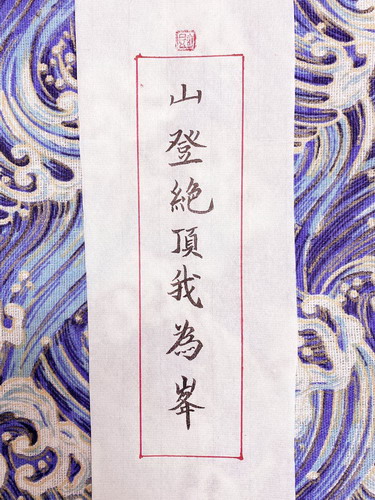 山登絶頂我為峯